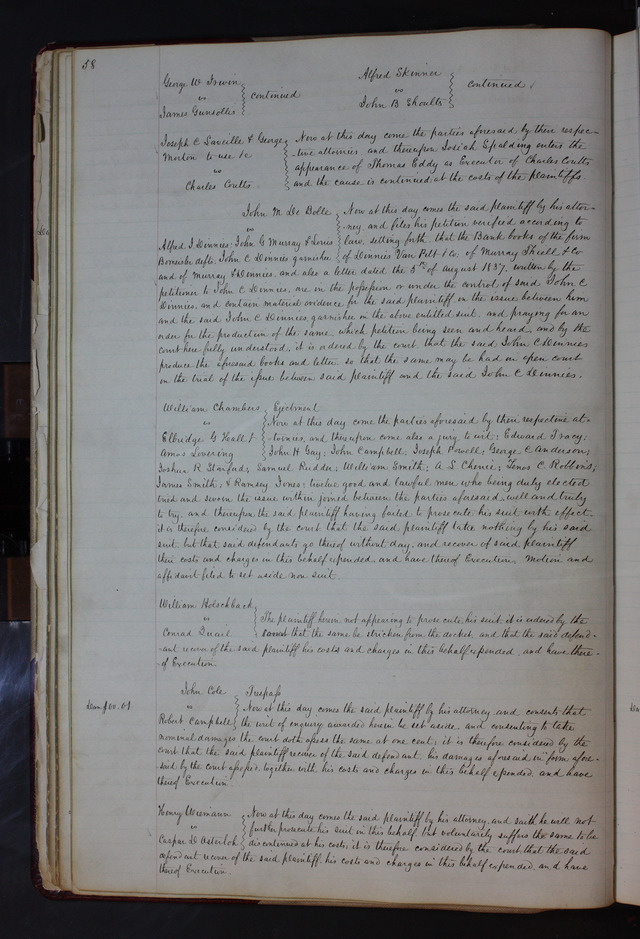 58
George W Irwin
vs
James Gunsollis
continued
Alfred Skinner
vs
John B Shoults
continued
Joseph C Saville & George
Morton to use &c
vs
Charles Coutts
Now at this day come the parties aforesaid by their respec-
-tive attornies, and thereupon Josiah Spalding enters the
appearance of Thomas Eddy as Executor of Charles Coutts
and the cause is continued at the costs of the plaintiffs.
John M De Bolle
vs
Alfred J Dinnies, John G Murray &
defts. John C Dinnies garnishee
Now at this day comes the said plaintiff by his attor-
-ney and files his petition verified according to
law, setting forth that the Bank books of the firm
of Dinnies Van Pelt & Co. of Murray & Co
and of Murray & Dinnies, and also a letter dated the 5th of august 1837, written by the
petitioner to John C Dinnies, are in the possession or under the control of said John C
Dinnies, and contain material evidence for the said plaintiff on the issue between him
and the said John C Dinnies, garnishee in the above entitled suit, and praying for an
order for the production of the same, which petition being seen and heard, and by the
court here fully understood, it is ordered by the court that the said John C Dinnies
produce the aforesaid books and letter, so that the same may be had in open court
on the trial of the issue between said plaintiff and the said John C Dinnies.
William Chambers
vs
Elbridge G
Amos Lovering
Ejectment
Now at this day come the parties aforesaid by their respective at-
-tornies, and thereupon come also a jury to wit: Edward Tracy;
John H Gay; John Campbell; Joseph Powell; George C Anderson;
Joshua R Stanford; Samuel Rudder; William Smith; A S Chenie; Zenos C Robbins;
James Smith; & Ramsey Jones: twelve good and lawful men who being duly elected
tried and sworn the issue within joined between the parties aforesaid, well and truly
to try, and thereupon the said plaintiff having failed to prosecute his suit with effect,
it is therefore considered by the court that the said plaintiff take nothing by his said
suit but that said defendants go thereof without day, and recover of said plaintiff
their costs and charges in this behalf expended, and have thereof Execution. Motion and
affidavit filed to set aside non suit.
William Holschback
vs
Conrad Quail
The plaintiff herein not appearing to prosecute his suit, it is ordered by the
that the same be stricken from the docket, and that the said defend-
-ant recover of the said plaintiff his costs and charges in this behalf expended, and have there-
-of Execution
John Cole
vs
Robert Campbell
Trespass
Dam $00.01
Now at this day comes the said plaintiff by his attorney, and consents that
the writ of enquiry awarded herein be set aside, and consenting to take
nominal damages, the court doth assess the same at one cent; it is therefore considered by the
court that the said plaintiff recover of the said defendant his damages aforesaid in form afore-
said by the court assessed, together with his costs and charges in this behalf expended, and have
thereof Execution
Henry Wiemann
vs
Caspar D Astertoh
Now at this day comes the said plaintiff by his attorney, and saith he will not
further prosecute his suit in this behalf, but voluntarily suffers the same to be
discontinued at his costs; it is therefore considered by the court, that the said
defendant recover of the said plaintiff, his costs and charges in this behalf expended, and have
thereof Execution